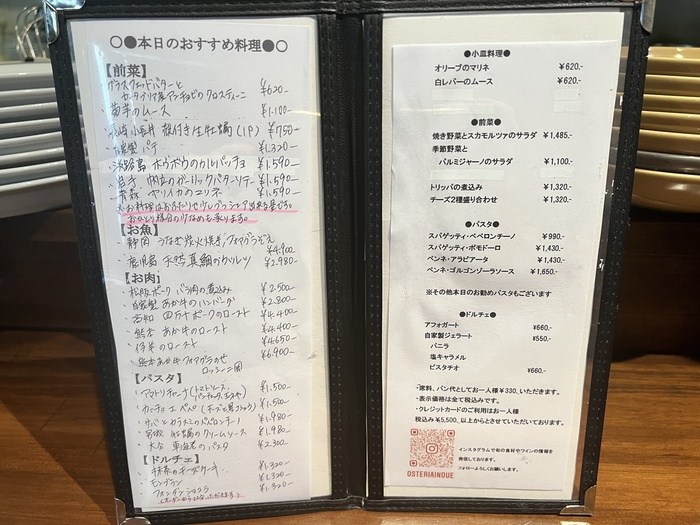 ○●本日のおすすめ料理●○
【前菜】
グラスフェッドバターと
アンチョビのクロスティーニ ¥620-
・菊芋のムース ¥1.100-
・長崎 小長井 殻付き生牡蠣(1P) ¥750-
・自家製 パテ ¥1.320-
・淡路島 ホウボウのカルパッチョ ¥1.590-
・岩手 帆立のガーリックバターソテー ¥1.590-
・青森 ヤリイカの ¥1.590-
※お料理はお二人でシェア出来る量です。
おひとり様分の少なめも承ります。
【お魚】
静岡 うなぎ炭火焼き フォアグラぞえ
¥4.900-
・鹿児島 天然真鯛の ¥2.980-
【お肉】
・松阪ポーク バラ肉の煮込み ¥2.500-
・自家製 あか牛のハンバーグ ¥2.800-
・高知 四万十ポークのロースト ¥4.400-
・熊本 あか牛のロースト ¥4.400-
・仔羊のロースト ¥4.650-
・熊本あか牛フォアグラのせ ¥6.900-
ロッシーニ風
【パスタ】
・アマトリチャーナ(トマトソース、
パンチェッタ、玉ネギ) ¥1.500-
・カーチョ エ ペペ(チーズと黒コショウ) ¥1.500-
・サバとカラスミのペペロンチーノ ¥1.980-
・宮城 牡蠣のクリームソース ¥1.980-
・大分 のパスタ ¥2.300-
【ドルチェ】
・抹茶のチーズケーキ ¥1.320-
・モンブラン ¥1.320-
・フォンダンショコラ ¥1.320-
●小皿料理●
オリーブのマリネ ¥620.-
白レバーのムース ¥620.-
●前菜●
焼き野菜とスカモルツァのサラダ ¥1,485.-
季節野菜と
パルミジャーノのサラダ ¥1,100.-
トリッパの煮込み ¥1,320.-
チーズ2種盛り合わせ ¥1,320.-
●パスタ●
スパゲッティ・ペペロンチーノ ¥990.-
スパゲッティ・ポモドーロ ¥1,430.-
ペンネ・アラビアータ ¥1,430.-
ペンネ・ゴルゴンゾーラソース ¥1,650.-
※その他本日のお勧めパスタもございます
●ドルチェ●
アフォガート ¥660.-
自家製ジェラート ¥550.-
バニラ
塩キャラメル
ピスタチオ ¥660.-
・席料、パン代としてお一人様¥330.いただきます。
・表示価格は全て税込みです。
・クレジットカードのご利用はお一人様
税込み¥5,500.以上からとさせていただいております。
インスタグラムで旬の食材やワインの情報を
発信しております。
フォローよろしくお願いします。
OSTERIAINOUE